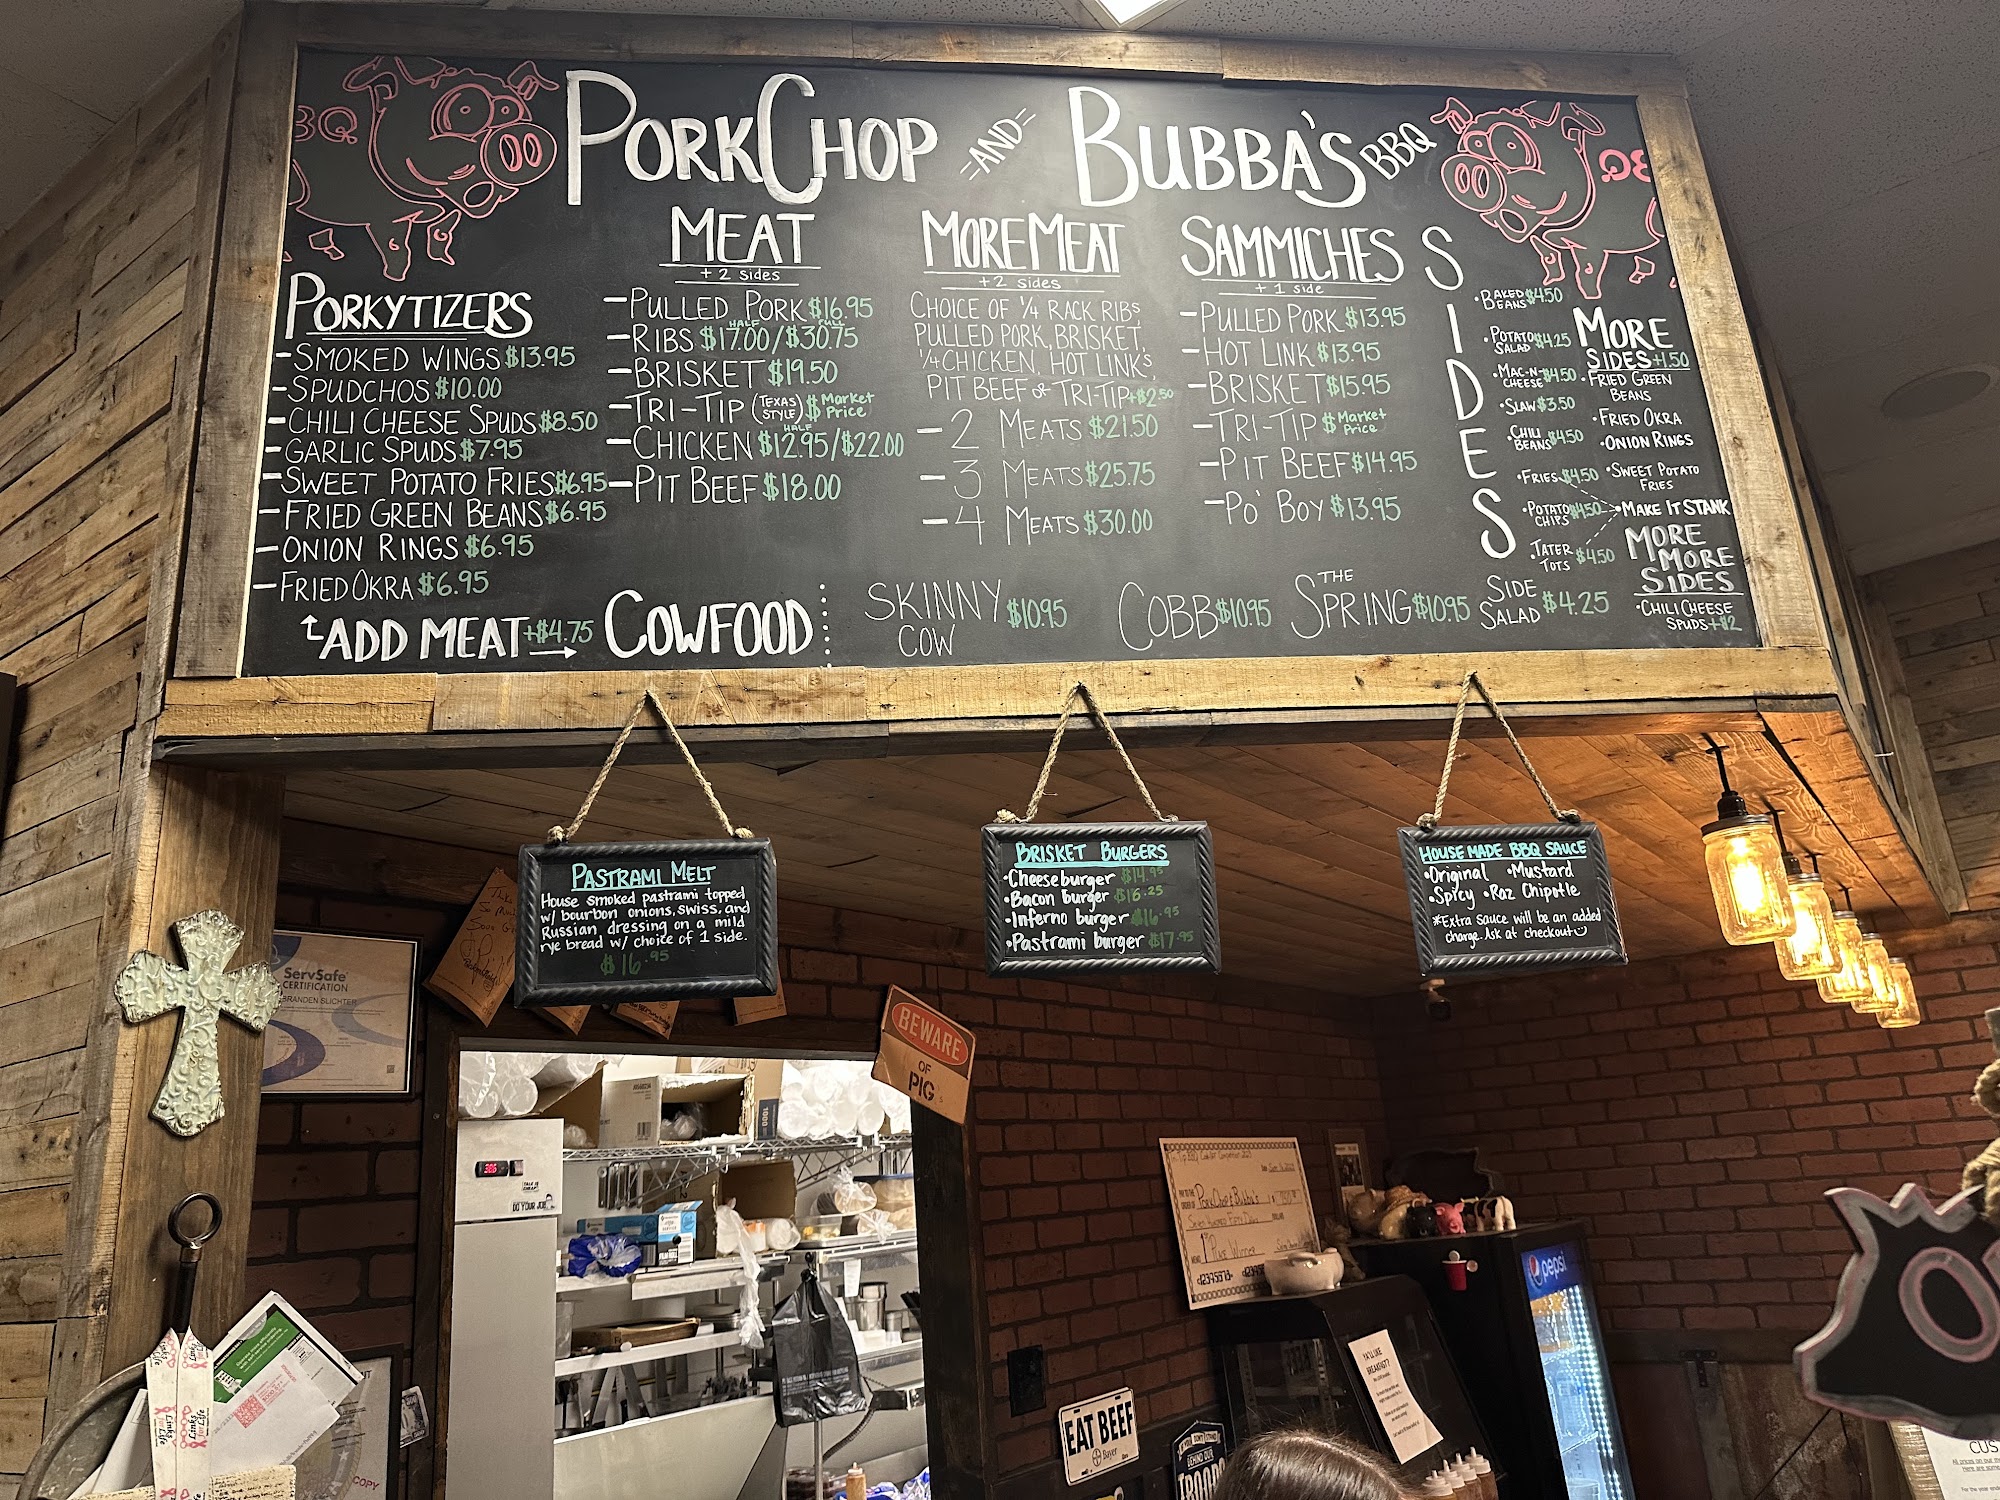 PORKCHOP =AND= BUBBA'S BBQ
PORKYTIZERS
-SMOKED WINGS $13.95
-SPUDCHOS $10.00
-CHILI CHEESE SPUDS $8.50
-GARLIC SPUDS $7.95
-SWEET POTATO FRIES $6.95
-FRIED GREEN BEANS $6.95
-ONION RINGS $6.95
-FRIED OKRA $6.95
ADD MEAT +$4.75
MEAT
+ 2 sides
-PULLED PORK $16.95
HALF FULL
-RIBS $17.00/$30.75
-BRISKET $19.50
-TRI-TIP (TEXAS STYLE) $ Market Price
HALF
-CHICKEN $12.95/$22.00
-PIT BEEF $18.00
MORE MEAT
+2 sides
CHOICE OF 1/4 RACK RIBS,
PULLED PORK, BRISKET,
1/4 CHICKEN, HOT LINKS,
PIT BEEF or TRI-TIP +$2.50
- 2 MEATS $21.50
- 3 MEATS $25.75
- 4 MEATS $30.00
SAMMICHES
+ 1 side
-PULLED PORK $13.95
-HOT LINK $13.95
-BRISKET $15.95
-TRI-TIP $ Market Price
-PIT BEEF $14.95
-PO' BOY $13.95
SIDES
•BAKED BEANS $4.50
•POTATO SALAD $4.25
•MAC-N-CHEESE $4.50
•SLAW $3.50
•CHILI BEANS $4.50
•FRIES $4.50
•POTATO CHIPS $4.50
•TATER TOTS $4.50
MORE
SIDES +1.50
•FRIED GREEN BEANS
•FRIED OKRA
•ONION RINGS
•SWEET POTATO FRIES
•MAKE IT STANK
MORE
MORE
SIDES
•CHILI CHEESE
SPUDS +$2
COWFOOD
SKINNY COW $10.95
COBB $10.95
THE SPRING $10.95
SIDE SALAD $4.25
PASTRAMI MELT
House smoked pastrami topped
w/ bourbon onions, swiss, and
Russian dressing on a mild
rye bread w/ choice of 1 side.
$16.95
BRISKET BURGERS
•Cheeseburger $14.95
•Bacon burger $16.25
•Inferno burger $16.95
•Pastrami burger $17.95
HOUSE MADE BBQ SAUCE
•Original •Mustard
•Spicy •Raz Chipotle
*Extra sauce will be an added
charge. Ask at checkout
ServSafe
CERTIFICATION
BRANDEN SLICHTER
BEWARE
OF
PIGS
PorkChop & Bubba's
Seven Hundred Fifty
1st Place Winner
pepsi
YA'LL LIKE
BREAKFAST??
EAT BEEF
Bayer
Links for Life
COPY
DO YOUR JOB